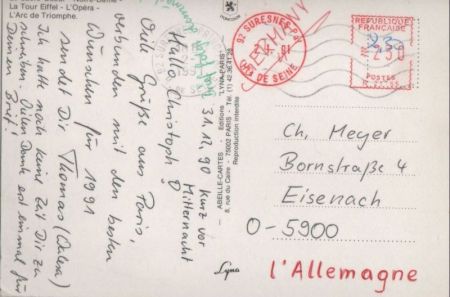 La Tour Eiffel - L'Opéra -
L'Arc de Triomphe.
31.12.90 kurz vor
Mitternacht
Hallo Christoph!
Viele Grüße aus Paris,
verbunden mit den besten
Wünschen für 1991
sendet Dir Thomas
Ich hatte noch keine Zeit Dir zu
schreiben. Vielen Dank erst einmal für
Deinen Brief!
ABEILLE-CARTES - Editions LYNA-PARIS
8, rue du Caire - 75002 PARIS - Tél. (1) 42.36.41.28
Reproduction interdite
Lyna
92 SURESNES PAL
HTS DE SEINE
REPUBLIQUE
FRANÇAISE
230
POSTES
Ch. Meyer
Bornstraße 4
Eisenach
O-5900
l'Allemagne